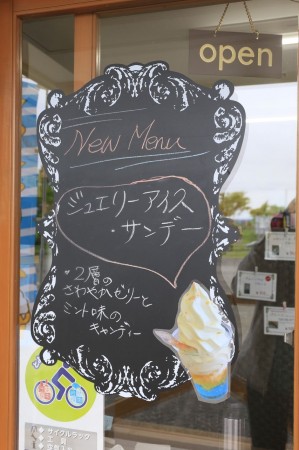 open
New Menu
ジュエリーアイス
・サンデー
・2層の
さわやかゼリーと
ミント味の
キャンディー
サイクルラック
工具
空気入れ